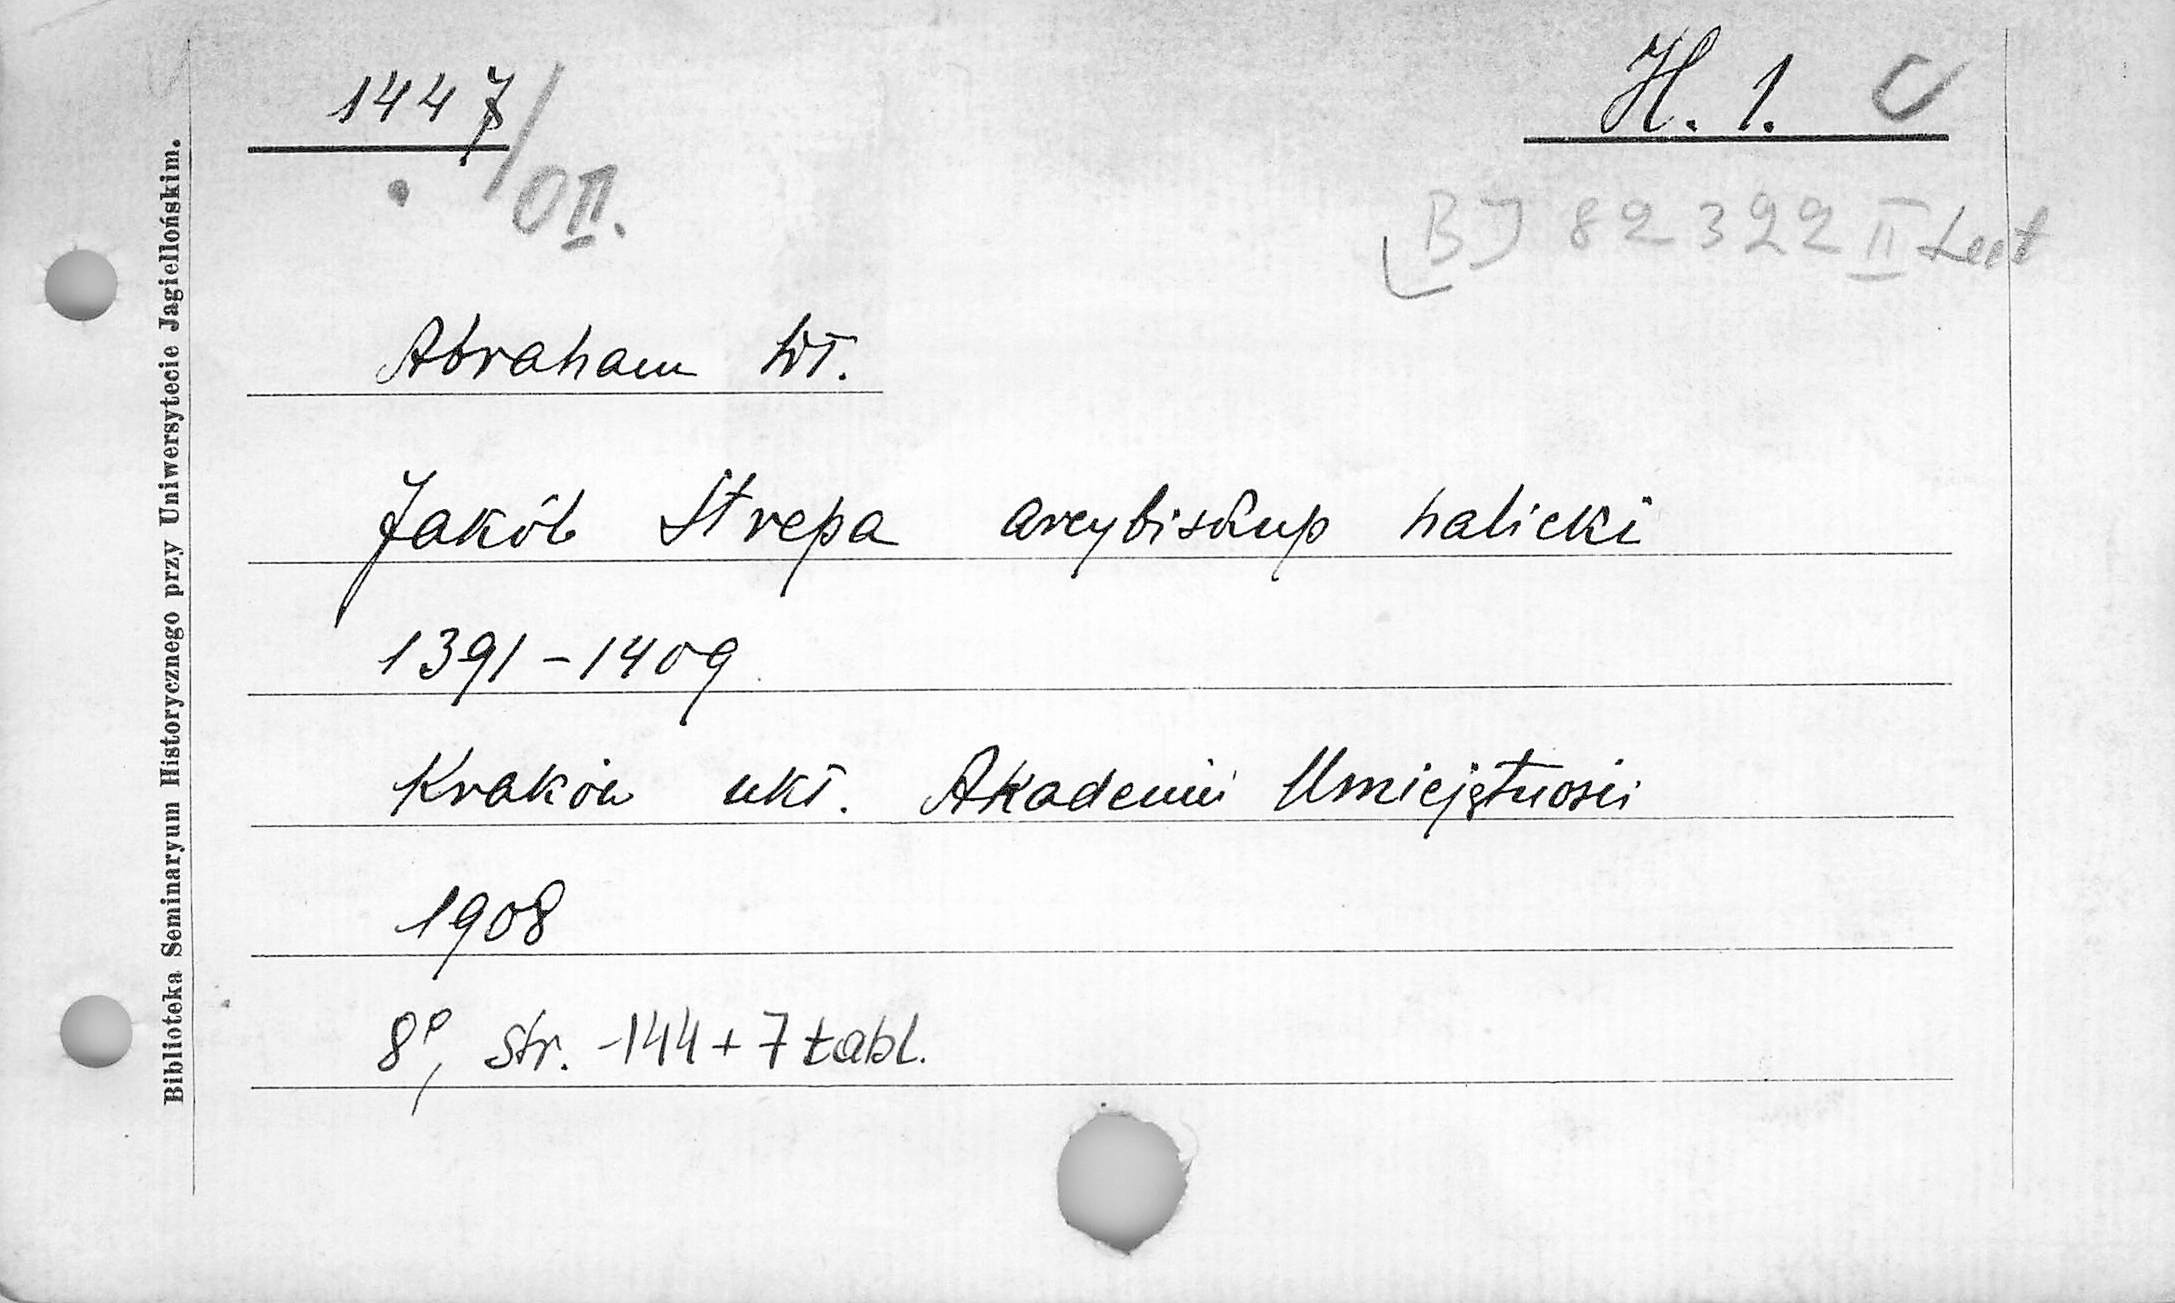 1447/OII.
H. 1. C
BJ 82322 II Lect
Abraham Wł.
Jakób Strepa arcybiskup halicki
1391-1409
Kraków nkł. Akademii Umiejętności
1908
8º, str. -144 + 7 tabl.
Biblioteka Seminaryum Historycznego przy Uniwersytecie Jagiellońskim.